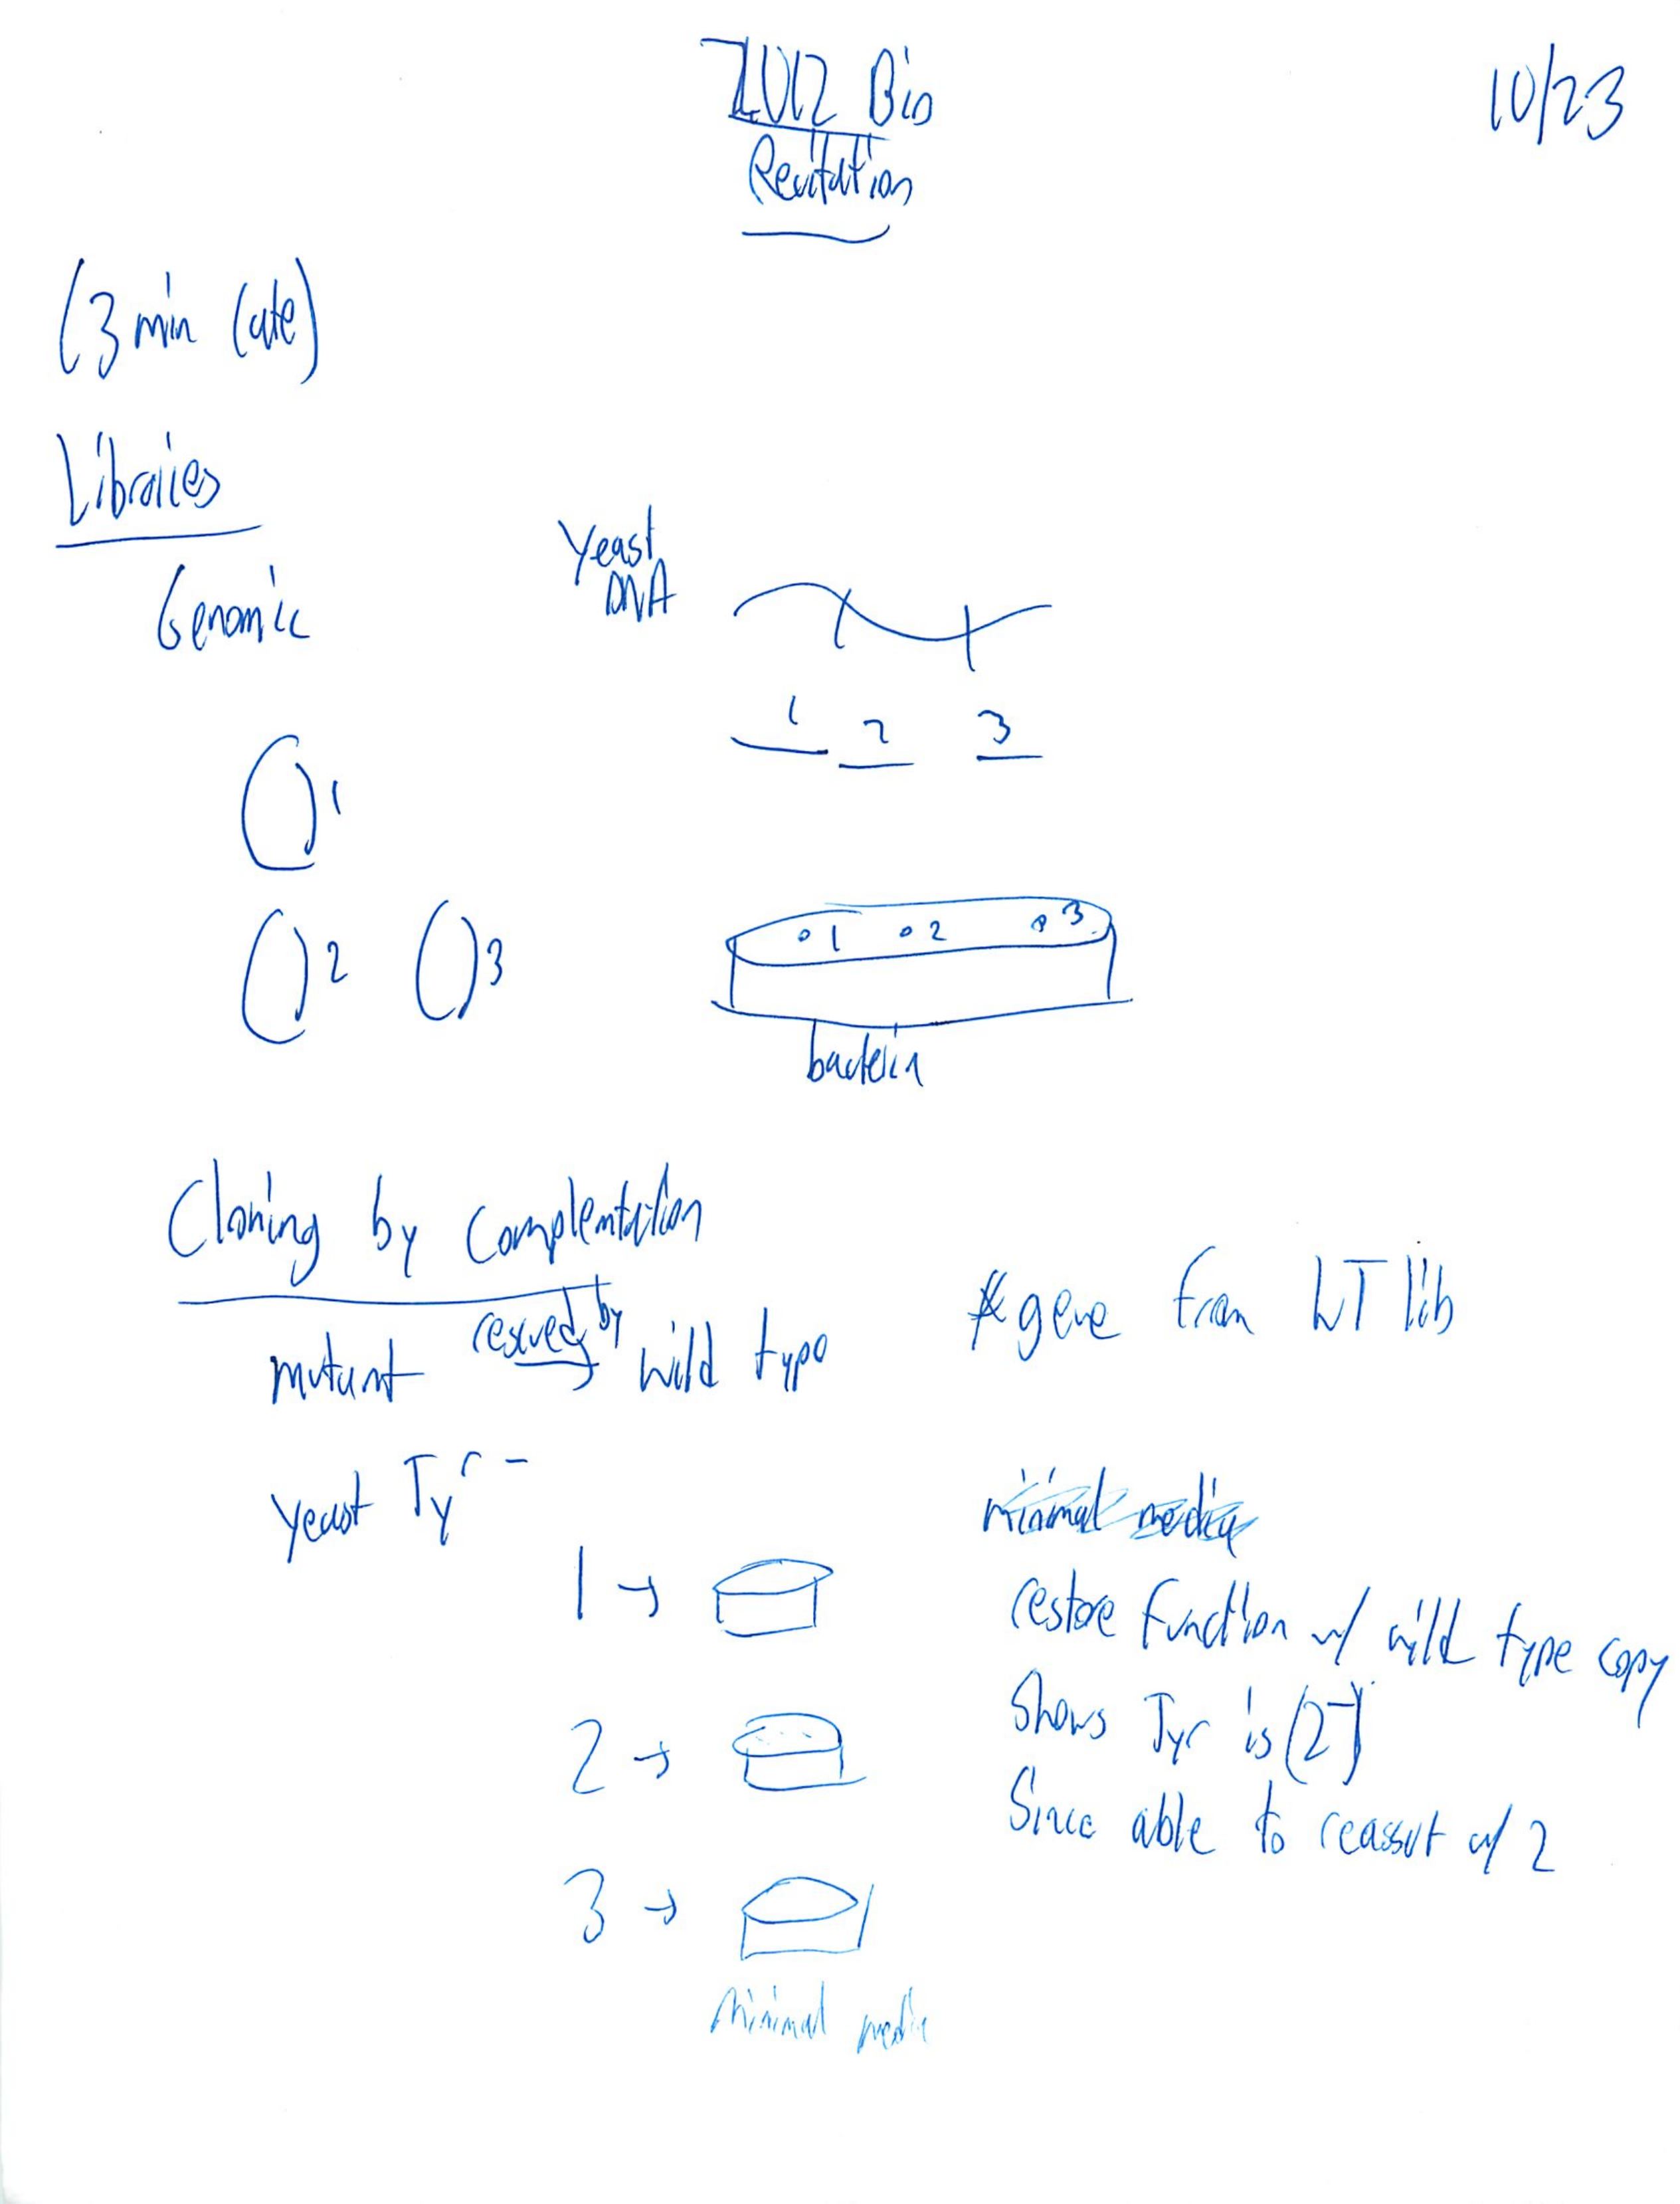 7.012 Bio
Recitation
10/23
(3 min late)
Libraries
Genomic
Yeast
DNA
1 2 3
1
2 3
1 2 3
bacteria
Cloning by Complentation
mutant rescued by wild type
*gene from WT lib
yeast Tyr -
minimal media
1 →
restore function w/ wild type copy
Shows Tyr is (2-)
2 →
Since able to w/ 2
3 →
minimal media